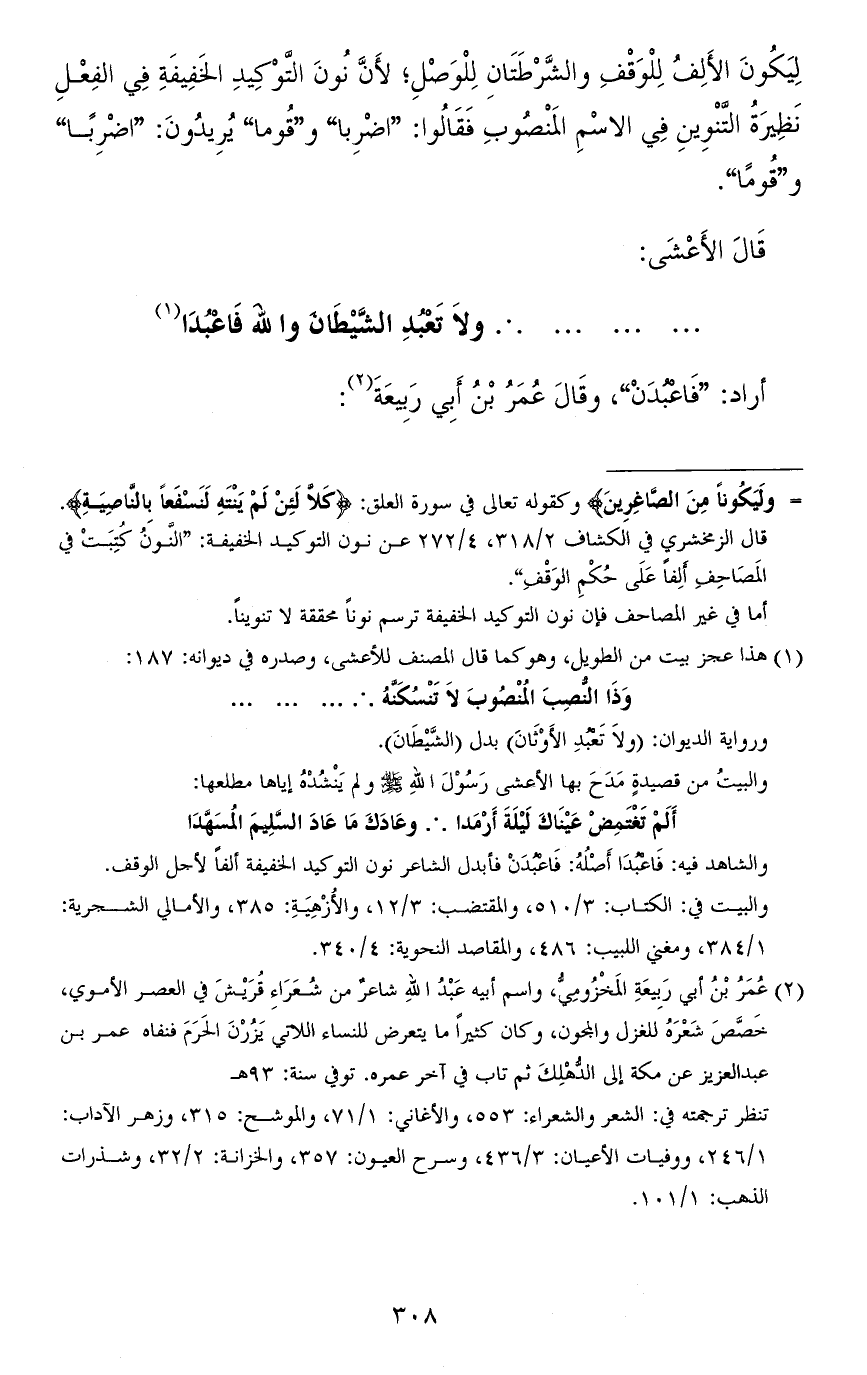 لِيَكُونَ الأَلِفُ لِلْوَقْفِ والشَّرْطَتَانِ لِلْوَصْلِ؛ لأَنَّ نُونَ التَّوْكِيدِ الخَفِيفَةِ فِي الفِعْلِ
نَظِيرَةُ التَّنْوِينِ فِي الاسْمِ المَنْصُوبِ فَقَالُوا: ”اضْرِبا“ و”قُوما“ يُرِيدُونَ: ”اضْرِبًـا“
و”قُومًا“.
قَالَ الأَعْشَى:
... ... ... ∴ ولاَ تَعْبُدِ الشَّيْطَانَ واللهَ فَاعْبُدَا(١)
أراد: ”فَاعْبُدَنْ“، وقَالَ عُمَرُ بْنُ أَبِي رَبِيعَةَ(٢):
= ولَيَكُوناً مِنَ الصَّاغِرِينَ﴾ وكقوله تعالى في سورة العلق: ﴿كَلاَّ لَئِنْ لَمْ يَنْتَهِ لَنَسْفَعاً بِالنَّاصِيَـةِ﴾.
قال الزمخشري في الكشاف ٣١٨/٢، ٢٧٢/٤ عـن نـون التوكيـد الخفيفـة: ”النَّـونُ كُتِبَـتْ في
المَصَاحِفِ أَلِفاً عَلَى حُكْمِ الوَقْفِ“.
أما في غير المصاحف فإن نون التوكيد الخفيفة ترسم نوناً محققة لا تنويناً.
(١) هذا عجز بيت من الطويل، وهو كما قال المصنف للأعشى، وصدره في ديوانه: ١٨٧:
وَذَا النُّصِبَ المُنْصُوبَ لاَ تَنْسُكَنَّهُ ∴ ... ... ...
ورواية الديوان: (ولاَ تَعْبُدِ الأَوْثَانَ) بدل (الشَّيْطَانَ).
والبيتُ من قصيدةٍ مَدَحَ بها الأعشى رَسُوْلَ اللهِ ﷺ ولم يَنْشُدْهُ إياها مطلعها:
أَلَمْ تَغْتَمِضْ عَيْنَاكَ لَيْلَةَ أَرْمَدا ∴ وعَادَكَ مَا عَادَ السَّلِيمَ المُسَهَّدَا
والشاهد فيه: فَاعْبُدَا أَصْلُهُ: فَاعْبُدَنْ فأبدل الشاعر نون التوكيد الخفيفة ألفاً لأجل الوقف.
والبيـت في: الكتـاب: ٥١٠/٣، والمقتضـب: ١٢/٣، والأُزْهِيَـةِ: ٣٨٥، والأمـالي الشـــجرية:
٣٨٤/١، ومغني اللبيب: ٤٨٦، والمقاصد النحوية: ٣٤٠/٤.
(٢) عُمَرُ بْنُ أبي رَبِيعَةَ المَخْزُومِيُّ، واسم أبيه عَبْدُ اللهِ شاعرٌ من شُـعَرَاءِ قُرَيْـشَ في العصر الأموي،
خَصَّصَ شَعْرَهُ للغزل والمجون، وكان كثيراً ما يتعرض للنساء اللاتي يَزُرْنَ الحَرَمَ فنفاه عمـر بـن
عبدالعزيز عن مكة إلى الدُّهْلِكَ ثم تاب في آخر عمره. توفي سنة: ٩٣هـ
تنظر ترجمته في: الشعر والشعراء: ٥٥٣، والأغاني: ٧١/١، والموشـح: ٣١٥، وزهـر الآداب:
٢٤٦/١، ووفيـات الأعيـان: ٤٣٦/٣، وسـرح العيون: ٣٥٧، والخزانة: ٣٢/٢، وشـذرات
الذهب: ١٠١/١.
٣٠٨